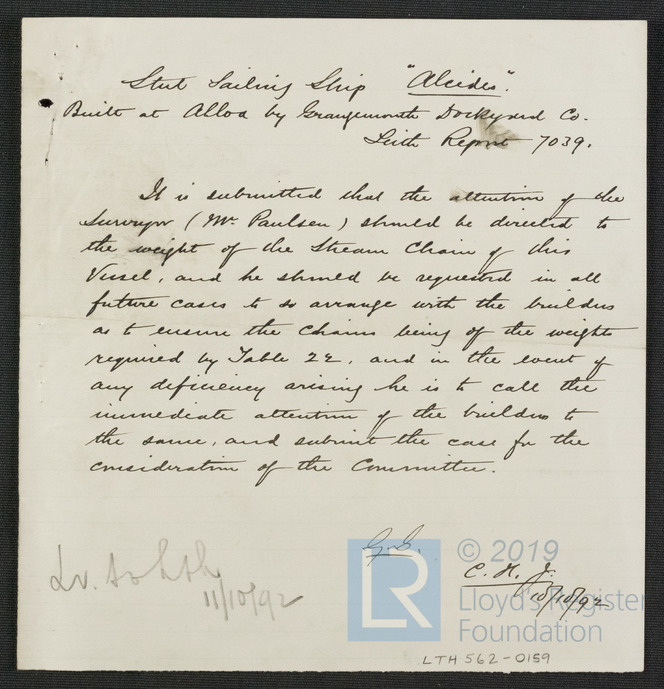 Steel Sailing Ship "Alcides".
Built at Alloa by Grangemouth Dockyard Co.
Leith Report 7039.
It is submitted that the attention of the
Surveyor (Mr. Paulsen) should be directed to
the weight of the Stream Chain of this
Vessel, and he should be requested in all
future cases to so arrange with the builders
as to ensure the chains being of the weights
required by Table 22, and in the event of
any deficiency arising he is to call the
immediate attention of the builders to
the same, and submit the case for the
consideration of the Committee.
C. H. J.
10/10/92
Lr. to Lth
11/10/92
© 2019
LR
Lloyd's Register
Foundation
LTH562-0159